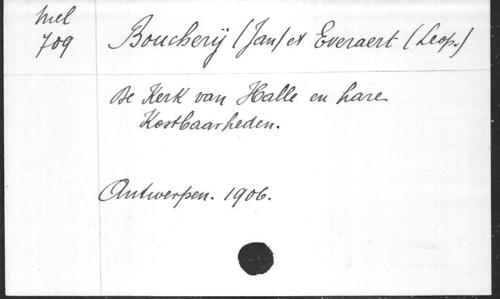 Mel
709
Boucherij (Jan) et Everaert (Leop.)
De Kerk van Halle en hare
Kostbaarheden.
Antwerpen. 1906.